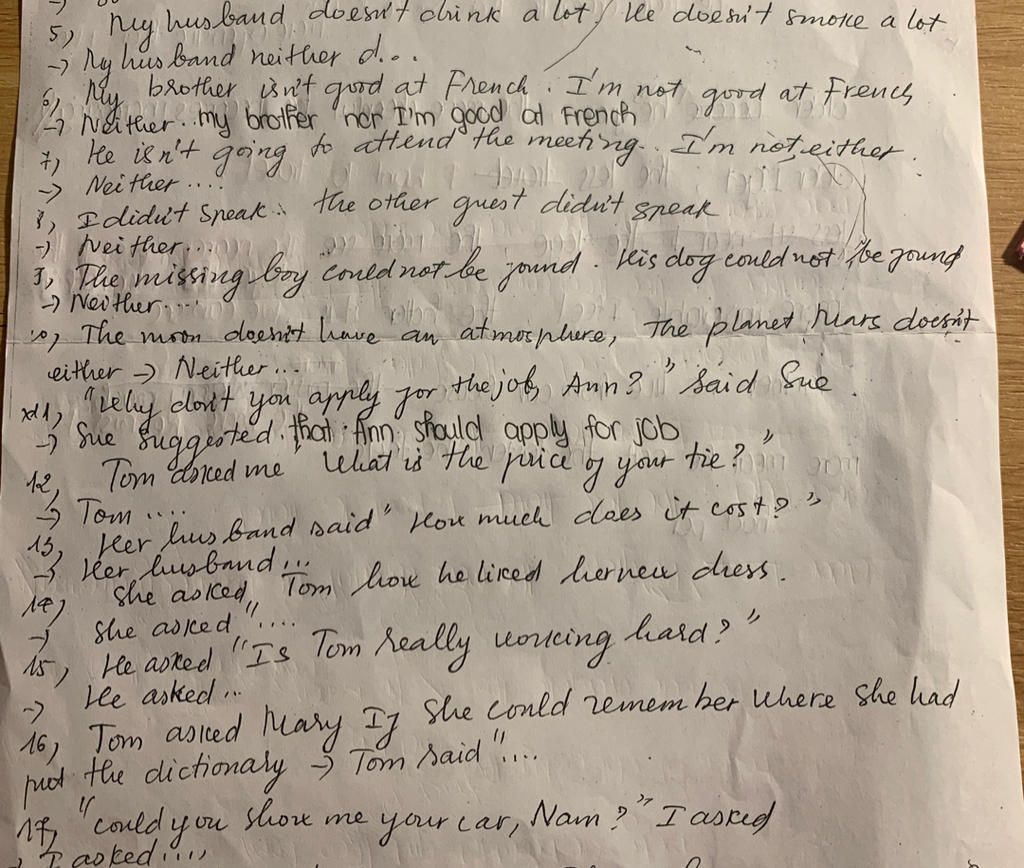 5, My husband doesn't drink a lot, He doesn't smoke a lot
→ My husband neither d...
6, My brother isn't good at French. I'm not good at French
→ Neither.. my brother nor I'm good at French
7, He isn't going to attend the meeting. I'm not either.
→ Neither....
8, I didn't speak. the other guest didn't speak
→ Neither...
9, The missing boy could not be found. His dog could not be found
→ Neither....
10, The moon doesn't have an atmosphere, The planet Mars doesn't
either → Neither...
11, "Why don't you apply for the job, Ann?" said Sue.
→ Sue suggested. that Ann should apply for job
12, Tom asked me "What is the price of your tie?"
→ Tom....
13, Her husband said "How much does it cost?"
→ Her husband...
14, She asked Tom how he liked her new dress.
→ She asked "....
15, He asked "Is Tom really working hard?"
→ He asked...
16, Tom asked Mary If she could remember where she had
put the dictionary → Tom said "....
17, "could you show me your car, Nam?" I asked
→ I asked....